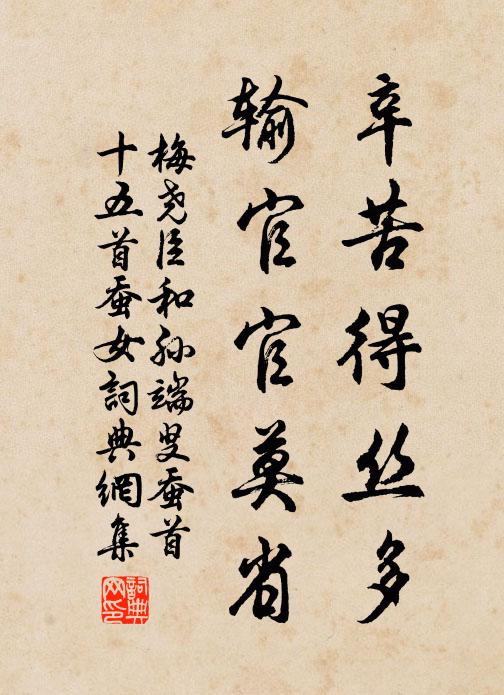 辛苦得丝多
输官官莫省
梅尧臣和孙端叟蚕首
十五首蚕女词典网集
詞典
网印